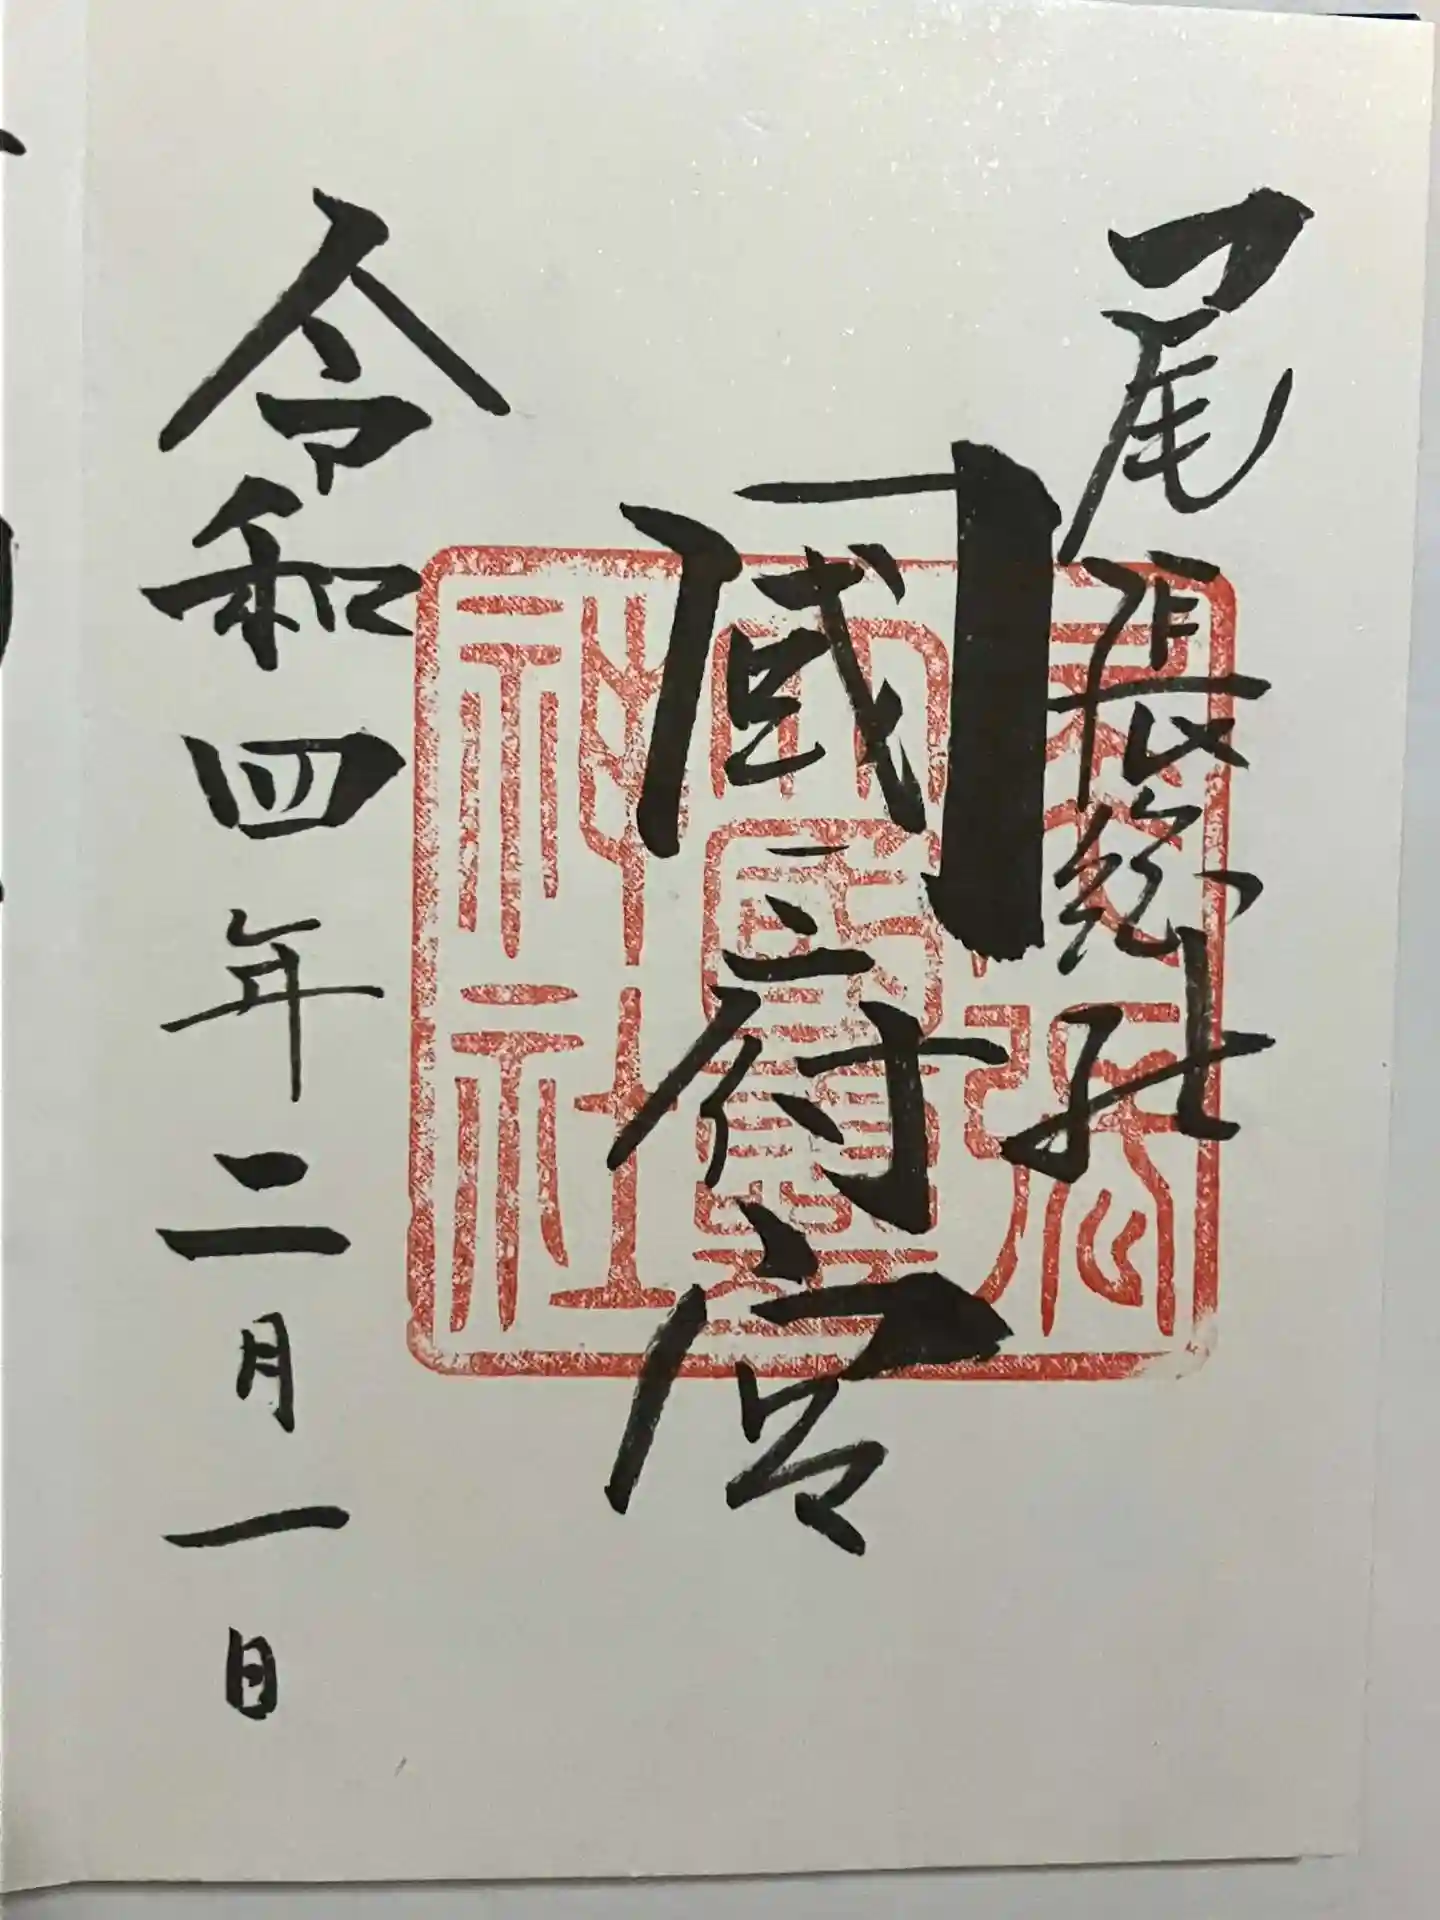 尾張総社
國府宮
令和四年二月一日
尾張
大國霊
神社